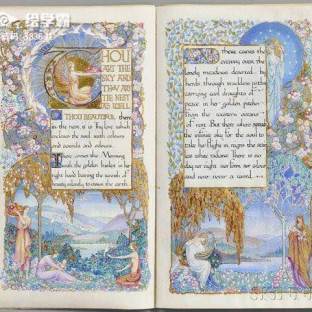 绘学霸
THOU
ART THE
SKY AND
THOU ART
THE NEST
AS WELL
THOU BEAUTIFUL, there
in the nest it is thy love which
encloses the soul with colours
and sounds and odours.
There comes the Morning
with the golden basket in her
right hand bearing the wreath of
beauty, silently to crown the earth.
there comes the
evening over the
lonely meadows deserted by
herds, through trackless paths
carrying cool draughts of
peace in her golden pitcher
from the western ocean
of rest. But there where spreads
the infinite sky for the soul to
take her flight in, reigns the stain
less white radiance. There is no
day nor night, nor form, nor colour
and never never a word.